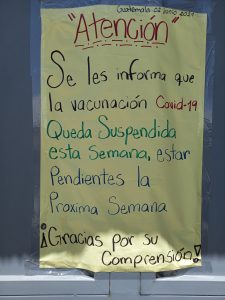 Guatemala 02 Junio 2021
"Atención"
Se les informa que
la vacunación Covid-19
Queda Suspendida
esta Semana, estar
Pendientes la
Proxima Semana
¡Gracias por su
Comprensión!